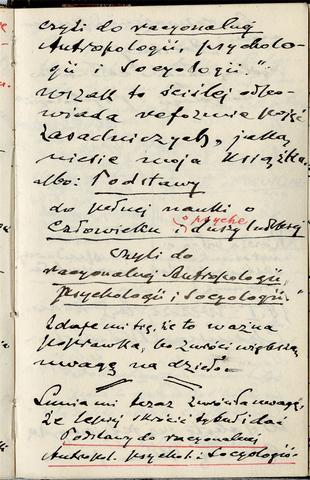 czyli do racyonalnej
Antropologii, psycholo-
gii i Socyologii."
wszak to ściślej odpo-
wiada reformie pojęć
zasadniczych, jaką
niesie moja książka.
albo: Podstawy
do pełnej nauki o
o psyche
człowieku i duszy ludzkiej
czyli do
racyonalnej Antropologii,
psychologii i Socyologii."
Zdaje mi się, że to ważna
poprawka, bo zwróci większą
uwagę na dzieło.
mi teraz uwagę,
że lepiej skrócić tytuł i dać
Podstawy do racyonalnej
Antropol. psychol. i Socyologii